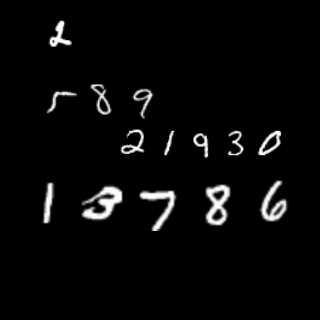 2
5 8 9
2 1 9 3 0
1 3 7 8 6